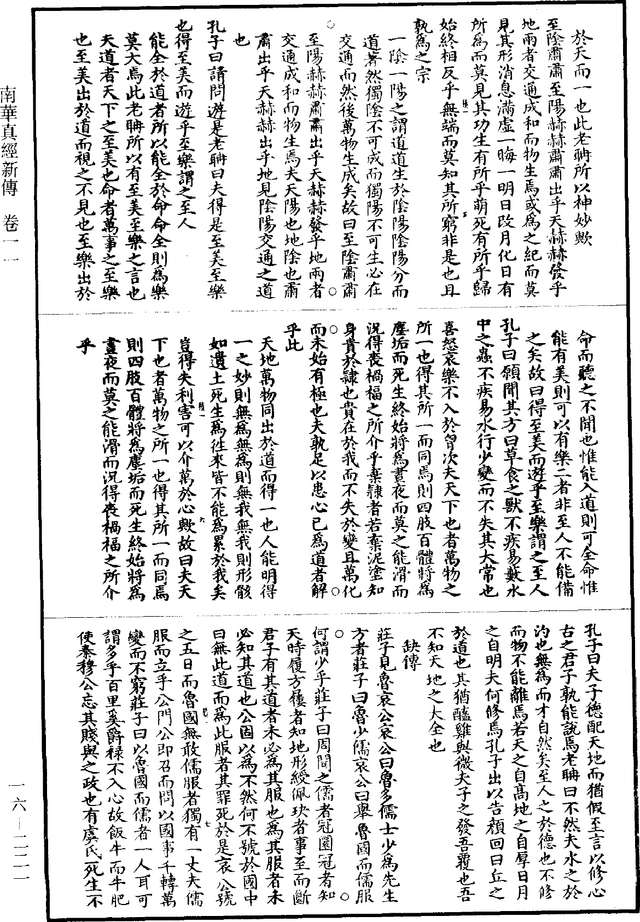 南華真經新傳　卷一一
於天而一也此老聃所以神妙歟
至陰肅肅至陽赫赫肅肅出乎天赫赫發乎
地兩者交通成和而物生焉或為之紀而莫
見其形消息滿虛一晦一明日改月化日有
所為而莫見其功生有所乎萌死有所乎歸
始終相反乎無端而莫知其所窮非是也且
孰為之宗
一陰一陽之謂道道生於陰陽陰陽分而
道䆠然獨陰不可成而獨陽不可生必在
交通而然後萬物生成矣故曰至陰肅肅
至陽赫赫肅肅出乎天赫赫發乎地兩者
交通成和而物生焉夫天陽也地陰也肅
肅出乎天赫赫出乎地見陰陽交通之道
也
孔子曰請問遊是老聃曰夫得是至美至樂
也得至美而遊乎至樂謂之至人
能全於道者所以能全於命命全則為樂
莫大焉此老聃所以有至美至樂之言也
夫道者天下之至美也命者萬事之至樂
也至美出於道而視之不見也至樂出於
命而聽之不聞也惟能入道則可全命惟
能有美則可以有樂二者非至人不能備
之矣故曰得至美而遊乎至樂謂之至人
孔子曰願聞其方曰草食之獸不疾易藪水
中之蟲不疾易水行少變而不失其大常也
喜怒哀樂不入於胷次夫天下也者萬物之
所一也得其所一而同焉則四肢百體將為
塵垢而死生終始將為晝夜而莫之能滑而
況得喪禍福之所介乎棄隸者若棄泥塗知
身貴於隸也貴在於我而不失於變且萬化
而未始有極也夫孰足以患心已為道者解
乎此
天地萬物同出於道而得一也人能明得
一之妙則無為無為則無我無我則形骸
如遺土死生為徃來皆不能為累於我矣
豈得失利害可以介萬於心歟故曰夫天
下也者萬物之所一也得其所一而同焉
則四肢百體將為塵垢而死生終始將為
晝夜而莫之能滑而況得喪禍福之所介
乎
孔子曰夫子德配天地而猶假至言以修心
古之君子孰能說焉老聃曰不然夫水之於
汋也無為而才自然矣至人之於德也不修
而物不能離焉若天之自高地之自厚日月
之自明夫何修焉孔子出以告顏回曰丘之
於道也其猶醯雞與微夫子之發吾覆也吾
不知天地之大全也
缺傳
莊子見魯哀公哀公曰魯多儒士少為先生
方者莊子曰魯少儒哀公曰舉魯國而儒服
何謂少乎莊子曰周聞之儒者冠圜冠者知
天時履方屨者知地形緩佩玦者事至而斷
君子有其道者未必為其服也為其服者未
必知其道也公固以為不然何不號於國中
曰無此道而為此服者其罪死於是哀公號
之五日而魯國無敢儒服者獨有一丈夫儒
服而立乎公門公即召而問以國事千轉萬
變而不窮莊子曰以魯國而儒者一人耳可
謂多乎百里奚爵祿不入心故飯牛而牛肥
使秦穆公忘其賤與之政也有虞氏死生不
一六—二二一